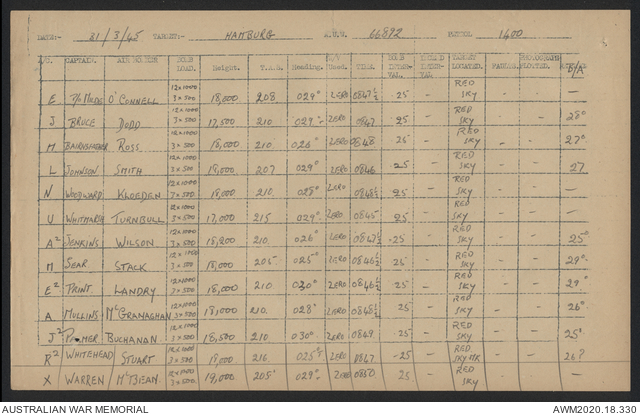 DATE:- 31/3/45 TARGET:- HAMBURG 66892 PETROL 1400
A/C. CAPTAIN. AIR BOMBER BOMB LOAD. Height. T.A.S. Heading. Used. TIME. BOMB INTER-VAL. INTER-VAL. TARGET LOCATED. PHOTOGRAPH PLOTTED. B/A
E F/O MEDE O'CONNELL 12x1000 3x500 18,000 208 029° ZERO 0847½ .25 - RED SKY - - —
J BRUCE DODD 12x1000 3x500 17,500 210 029° ZERO 0847 .25 - RED SKY - - 28°
M BAIRNSFATHER ROSS 12x1000 3x500 18,000 210 026° ZERO 0848 .25 - RED SKY - - 27°
L JOHNSON SMITH 12x1000 3x500 18,000 207 029° ZERO 0846 .25 - RED SKY - - 27
N WOODWARD KLOEDEN 12x1000 3x500 18,000 210 028° ZERO 0848½ .25 - RED SKY - - —
U WHITMARSH TURNBULL 12x1000 3x500 17,000 215 029° ZERO 0845 .25 - RED SKY - - —
A² JENKINS WILSON 12x1000 3x500 18,200 210 026° ZERO 0847½ .25 - RED SKY - - 25°
M SEAR STACK 12x1000 3x500 18,000 205 025° ZERO 0846½ .25 - RED SKY - - 29°
E² PRINT LANDRY 12x1000 3x500 18,000 210 030° ZERO 0846½ .25 - RED SKY - - 27°
A MULLINS McGRANAGHAN 12x1000 3x500 18,000 210 028° ZERO 0848½ .25 - RED SKY - - 26°
J² PALMER BUCHANAN 12x1000 3x500 18,500 210 030° ZERO 0849 .25 - RED SKY - - 25°
R² WHITEHEAD STUART 12x1000 3x500 18,000 210 ZERO 0847 .25 - RED SKY MK - - 26?
X WARREN McBEAN 12x1000 3x500 19,000 205 029° ZERO 0850 .25 - RED SKY - - —
AUSTRALIAN WAR MEMORIAL AWM2020.18.330